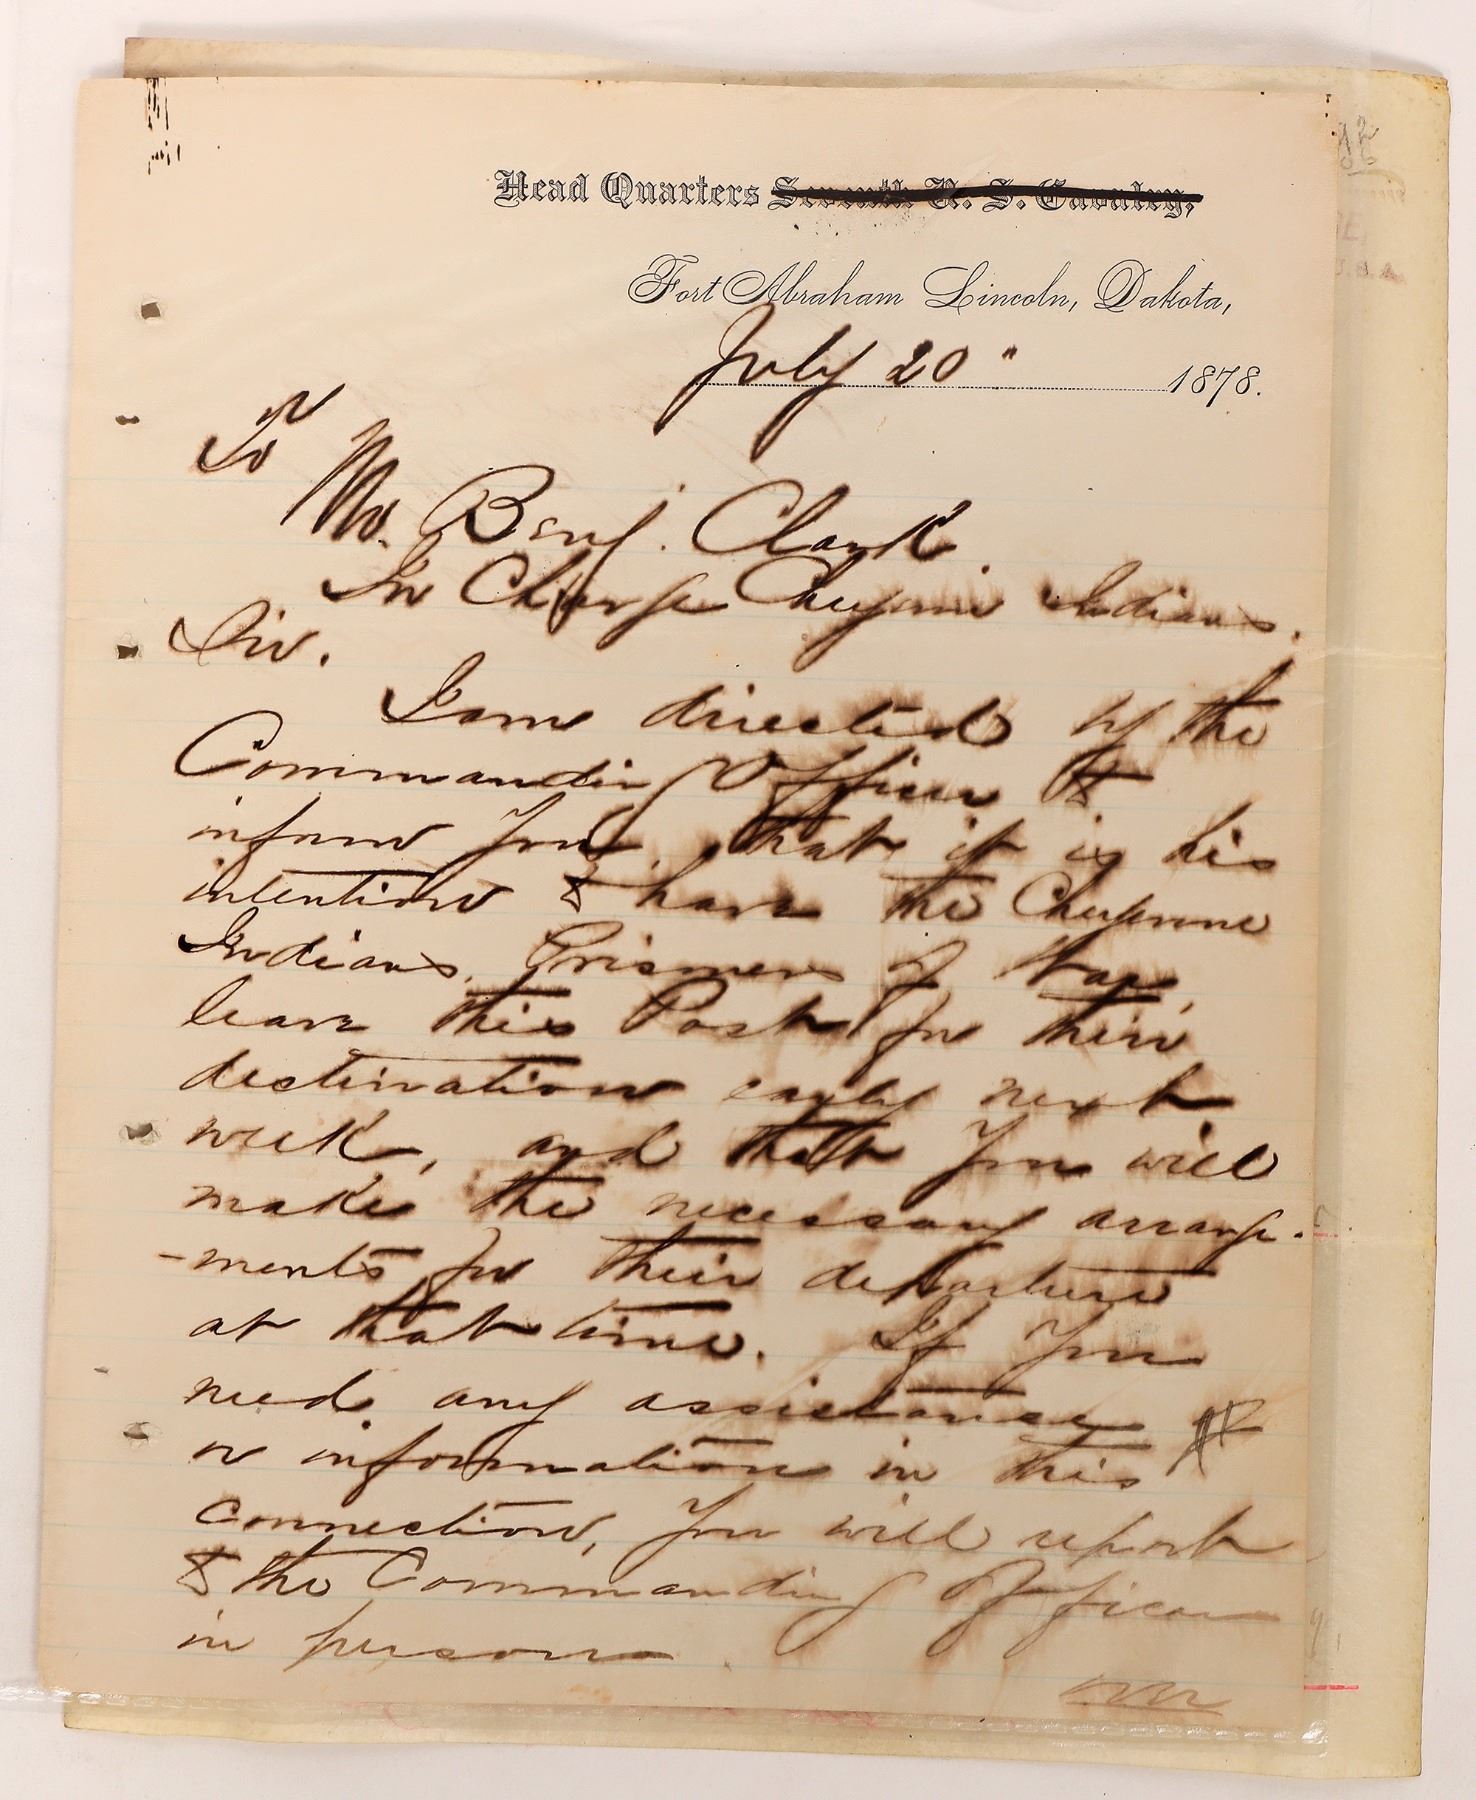 Head Quarters Seventh U. S. Cavalry,
Fort Abraham Lincoln, Dakota,
July 20" 1878.
To
Mr. Benj. Clark.
In Charge Cheyenne Indians.
Sir.
I am directed by the
Commanding Officer to
inform you, that it is his
intention to have the Cheyenne
Indians, Prisoners of War,
leave this Post for their
destination early next
week, and that you will
make the necessary arrange-
-ments for their departure
at that time. If you
need any assistance
or information in this
connection, you will report
to the Commanding Officer
in person.
over